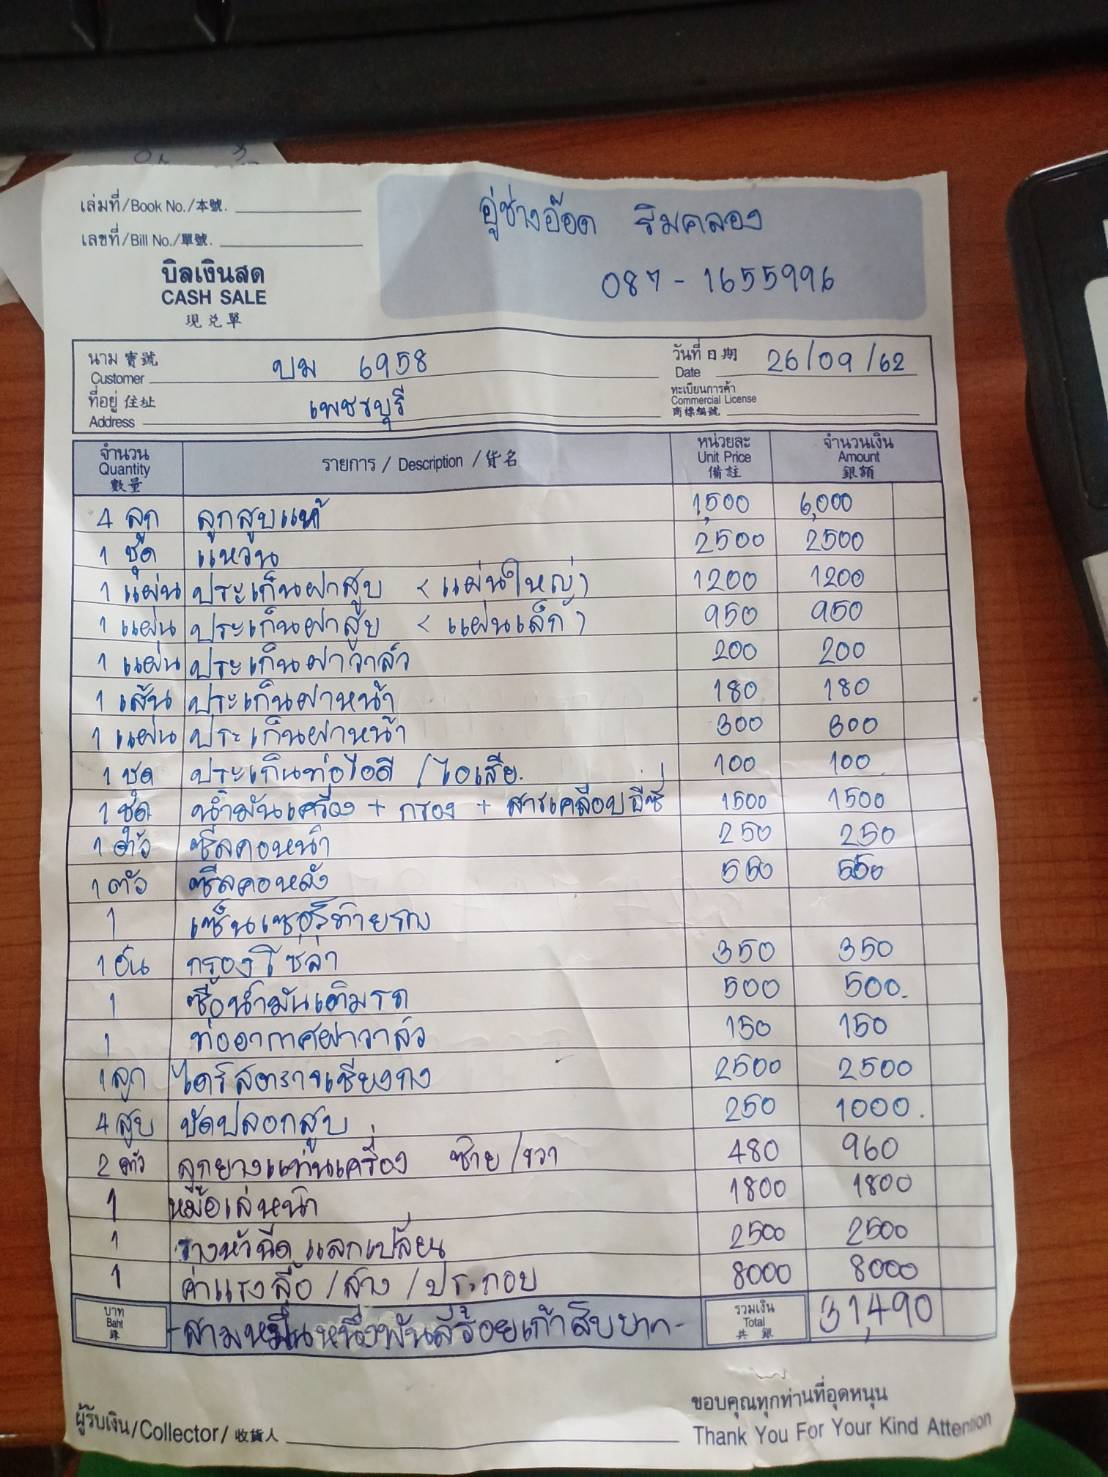 เล่มที่/Book No./本號.
เลขที่/Bill No./單號.
บิลเงินสด
CASH SALE
現兌單
อู่ช่างอ๊อด ริมคลอง
087-1655996
นาม 寶號 Customer บม 6958 วันที่ 日期 Date 26/09/62
ที่อยู่ 住址 Address เพชรบุรี ทะเบียนการค้า Commercial License 商標編號
จำนวน Quantity 數量 รายการ / Description / 貨名 หน่วยละ Unit Price 備註 จำนวนเงิน Amount 銀額
4 ลูก ลูกสูบแท้ 1,500 6,000
1 ชุด แหวน 2500 2500
1 แผ่น ประเก็นฝาสูบ (แผ่นใหญ่) 1200 1200
1 แผ่น ประเก็นฝาสูบ (แผ่นเล็ก) 950 950
1 แผ่น ประเก็นฝาวาล์ว 200 200
1 เส้น ประเก็นฝาหน้า 180 180
1 แผ่น ประเก็นฝาหน้า 300 300
1 ชุด ประเก็นท่อไอดี /ไอเสีย. 100 100
1 ชุด น้ำมันเครื่อง + กรอง + สารเคลือบ 1500 1500
1 ตัว ซีลคอหน้า 250 250
1 ตัว ซีลคอหลัง 550 550
1 เซ็นเซอร์ท้ายราง
1 อัน กรองโซล่า 350 350
1 ซื้อน้ำมันเติมรถ 500 500.
1 ท่ออากาศฝาวาล์ว 150 150
1 ลูก ไดร์สตาร์ทเชียงกง 2500 2500
4 สูบ ขัดปลอกสูบ 250 1000.
2 ตัว ลูกยางแท่นเครื่อง ซ้าย/ขวา 480 960
1 หม้อเล่หน้า 1800 1800
1 รางหัวฉีดแลกเปลี่ยน 2500 2500
1 ค่าแรงลื้อ/ล้าง/ประกอบ 8000 8000
บาท Baht 銖 -สามหมื่นหนึ่งพันสี่ร้อยเก้าสิบบาท- รวมเงิน Total 共銀 31,490
ขอบคุณทุกท่านที่อุดหนุน
ผู้รับเงิน/Collector/收貨人 Thank You For Your Kind Attention